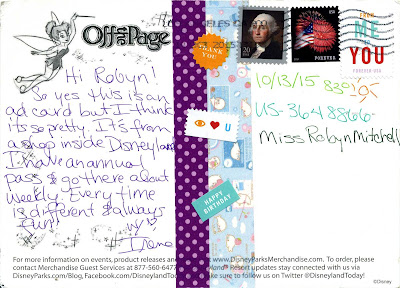 Off the Page
Hi Robyn!
So yes this is an
ad card but I think
its so pretty. It's from
a shop inside Disneyland
I have an annual
pass & go there about
weekly. Every time
is different & always
fun!
w/ ♡
Irene
THANK YOU
♥ U
HAPPY BIRTHDAY
20
USA
FOREVER
USA
FROM
ME
TO
YOU
FOREVER/USA
10/13/15 83°
US-3648866
Miss Robyn Mitchell
For more information on events, product releases and
www.DisneyParksMerchandise.com. To order, please
contact Merchandise Guest Services at 877-560-647
Resort updates stay connected with us via
DisneyParks.com/Blog, Facebook.com/Disneyland
sure to follow us on Twitter @DisneylandToday!
©Disney